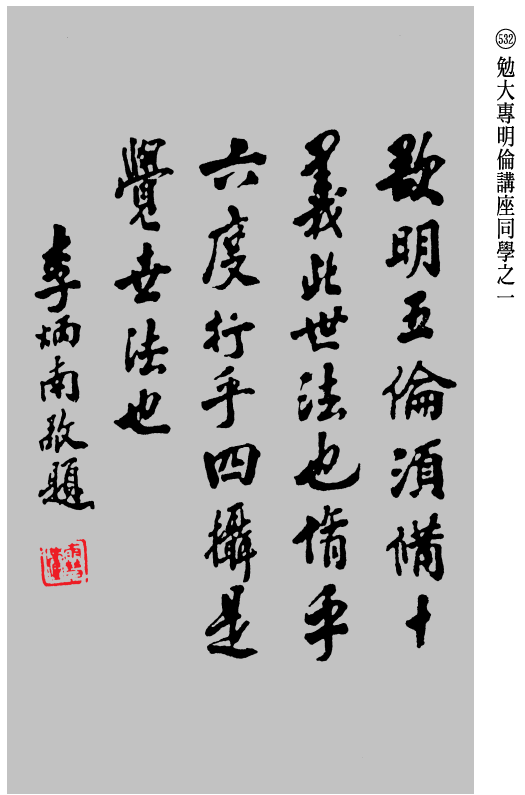 532 勉大專明倫講座同學之一
欲明五倫須備十
義此世法也脩乎
六度行乎四攝是
覺世法也
李炳南敬題